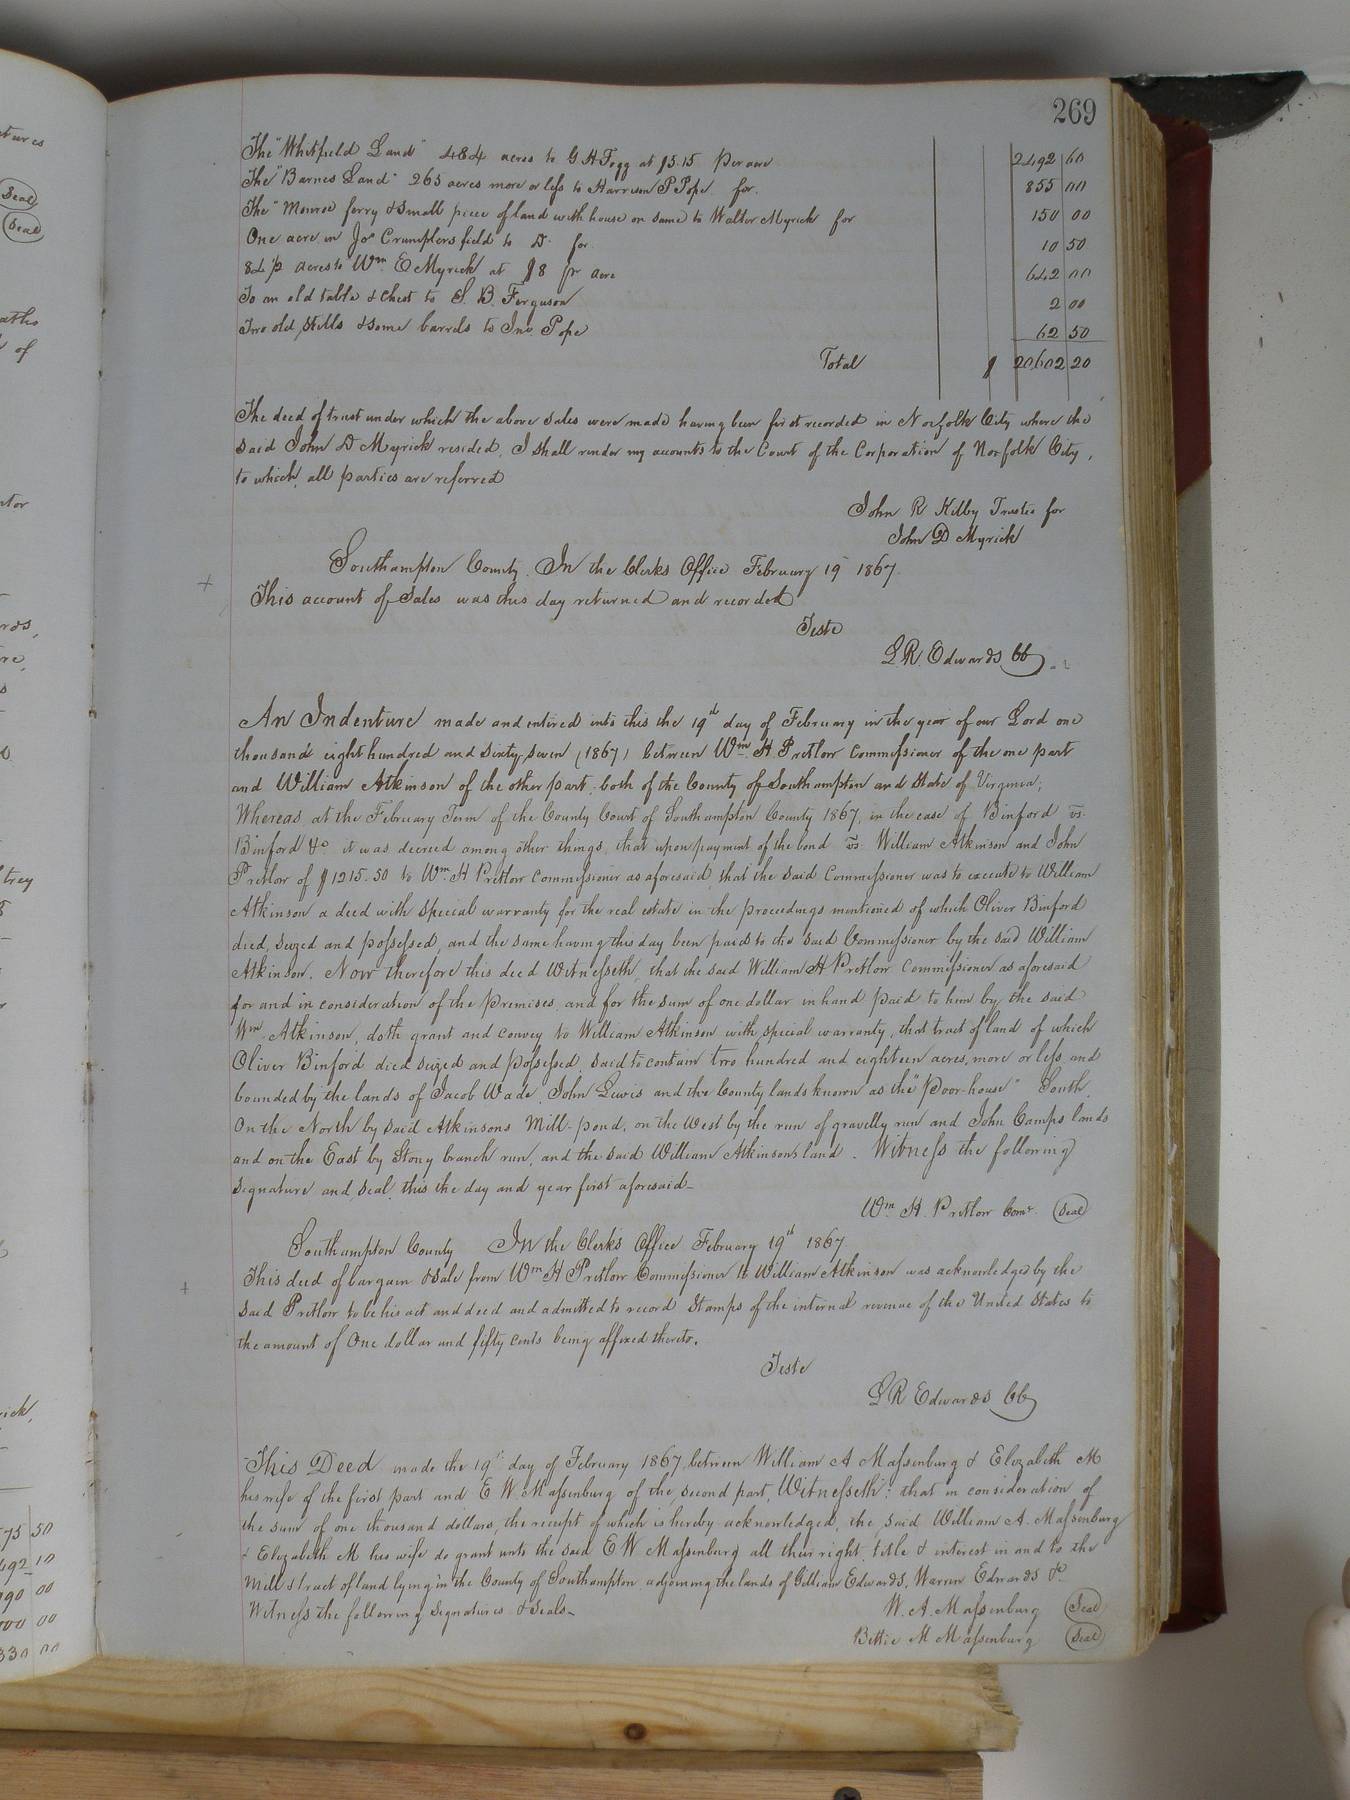 269
The "Whitfield Land" 484 acres to G H Fogg at $5.15 per acre 2492 60
The "Barnes Land" 265 acres more or less to Harrison P Pope for. 855 00
The "Monroe ferry & small piece of land with house on same to Walter Myrick for 150 00
One acre in Jos Crumplers field to Do for 10 50
84 1/2 acres to Wm E Myrick at $8 pr acre 642 00
To an old table & chest to S. B. Ferguson 2 00
Two old stills & some barrels to Jno. Pope 62 50
Total $ 20,602 20
The deed of trust under which the above sales were made having been first recorded in Norfolk City where the
said John D Myrick resided, I shall render my accounts to the Court of the Corporation of Norfolk City,
to which all parties are referred
John R Kilby Trustee for
John D Myrick
Southampton County. In the Clerks Office February 19 1867.
This account of Sales was this day returned and recorded
Teste
L R. Edwards CC
An Indenture made and entered into this the 19th day of February in the year of our Lord one
thousand eight hundred and sixty seven (1867) between Wm H Pretlow Commissioner of the one part
and William Atkinson of the other part, both of the County of Southampton and State of Virginia;
Whereas at the February Term of the County Court of Southampton County 1867, in the case of Binford vs.
Binford &c. it was decreed among other things, that upon payment of the bond vs. William Atkinson and John
Pretlow of $1215.50 to Wm H Pretlow Commissioner as aforesaid, that the said Commissioner was to execute to William
Atkinson a deed with special warranty for the real estate in the proceedings mentioned of which Oliver Binford
died, seized and possessed, and the same having this day been paid to the said Commissioner by the said William
Atkinson. Now therefore this deed Witnesseth, that the said William H Pretlow Commissioner as aforesaid
for and in consideration of the premises, and for the sum of one dollar in hand paid to him by the said
Wm Atkinson, doth grant and convey to William Atkinson with special warranty, that tract of land of which
Oliver Binford died seized and possessed, said to contain two hundred and eighteen acres, more or less, and
bounded by the lands of Jacob Wade, John Lewis and the County lands known as the "Poor-house" South
On the North by said Atkinsons Mill-pond, on the West by the run of gravelly run and John Camps lands
and on the East by Stony branch run, and the said William Atkinson's land. Witness the following
signature and seal, this the day and year first aforesaid-
Wm H. Pretlow Comr. Seal
Southampton County In the Clerk's Office February 19th 1867.
This deed of bargain & sale from Wm H Pretlow Commissioner to William Atkinson was acknowledged by the
said Pretlow to be his act and deed and admitted to record Stamps of the internal revenue of the United States to
the amount of One dollar and fifty cents being affixed thereto.
Teste
L R Edwards CC
This Deed made the 19 day of February 1867, between William A Massenburg & Elizabeth M
his wife of the first part and E W Massenburg of the second part, Witnesseth: that in consideration of
the sum of one thousand dollars, the receipt of which is hereby acknowledged, the said William A. Massenburg
& Elizabeth M his wife do grant unto the said E W Massenburg all their right, title & interest in and to the
Mill & tract of land lying in the County of Southampton adjoining the lands of Gilliam Edwards, Warren Edwards &c.
Witness the following signatures & seals-
W. A. Massenburg Seal
Bettie M Massenburg Seal